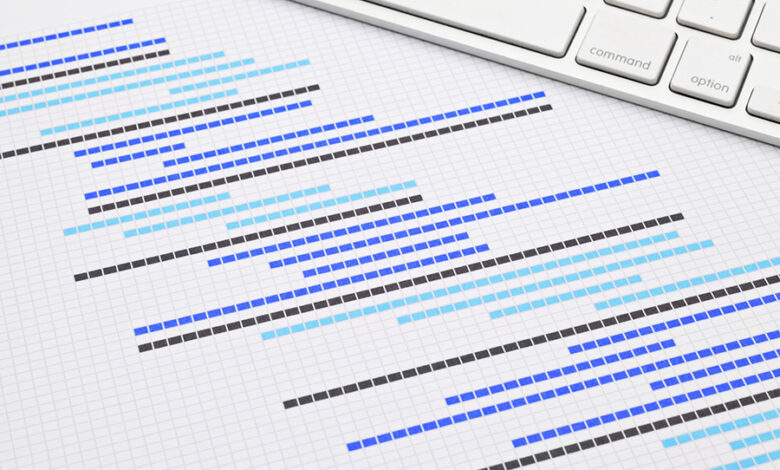 command
alt
option